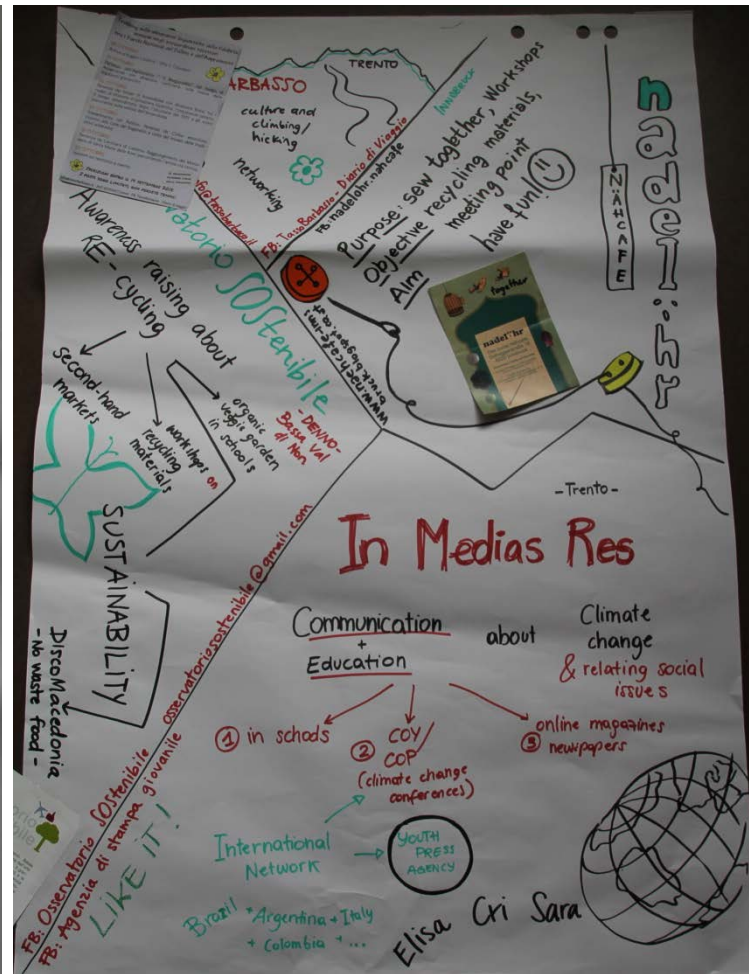 TRENTO
ARBASSO
culture and
climbing/
hicking
networking
FB: TassoBarbasso - Diario di Viaggio
FB: nadelohr.nähcafe
INNSBRUCK
Purpose: sew together, Workshops
Objective recycling materials,
Aim meeting point
have fun!
nadel:öhr
NÄHCAFE
together
nadel:öhr
www.naehcafe-inns
bruck.blogspot.co.at
ratorio SOStenibile
Awareness raising about
RE-cycling
second-hand
markets
workshops on
recycling
materials
organic
veggie garden
in schools
- DENNO -
Bassa Val
di Non
SUSTAINABILITY
DiscoMacedonia
- No waste food -
FB: Osservatorio SOStenibile osservatoriosostenibile@gmail.com
FB: Agenzia di stampa giovanile
LIKE IT!
- Trento -
In Medias Res
Communication
+
Education
about
Climate
change
& relating social
issues
① in schools
② COY/
COP
(climate change
conferences)
③ online magazines
newspapers
International
Network
YOUTH
PRESS
AGENCY
Brazil + Argentina + Italy
+ Colombia + ...
Elisa Cri Sara